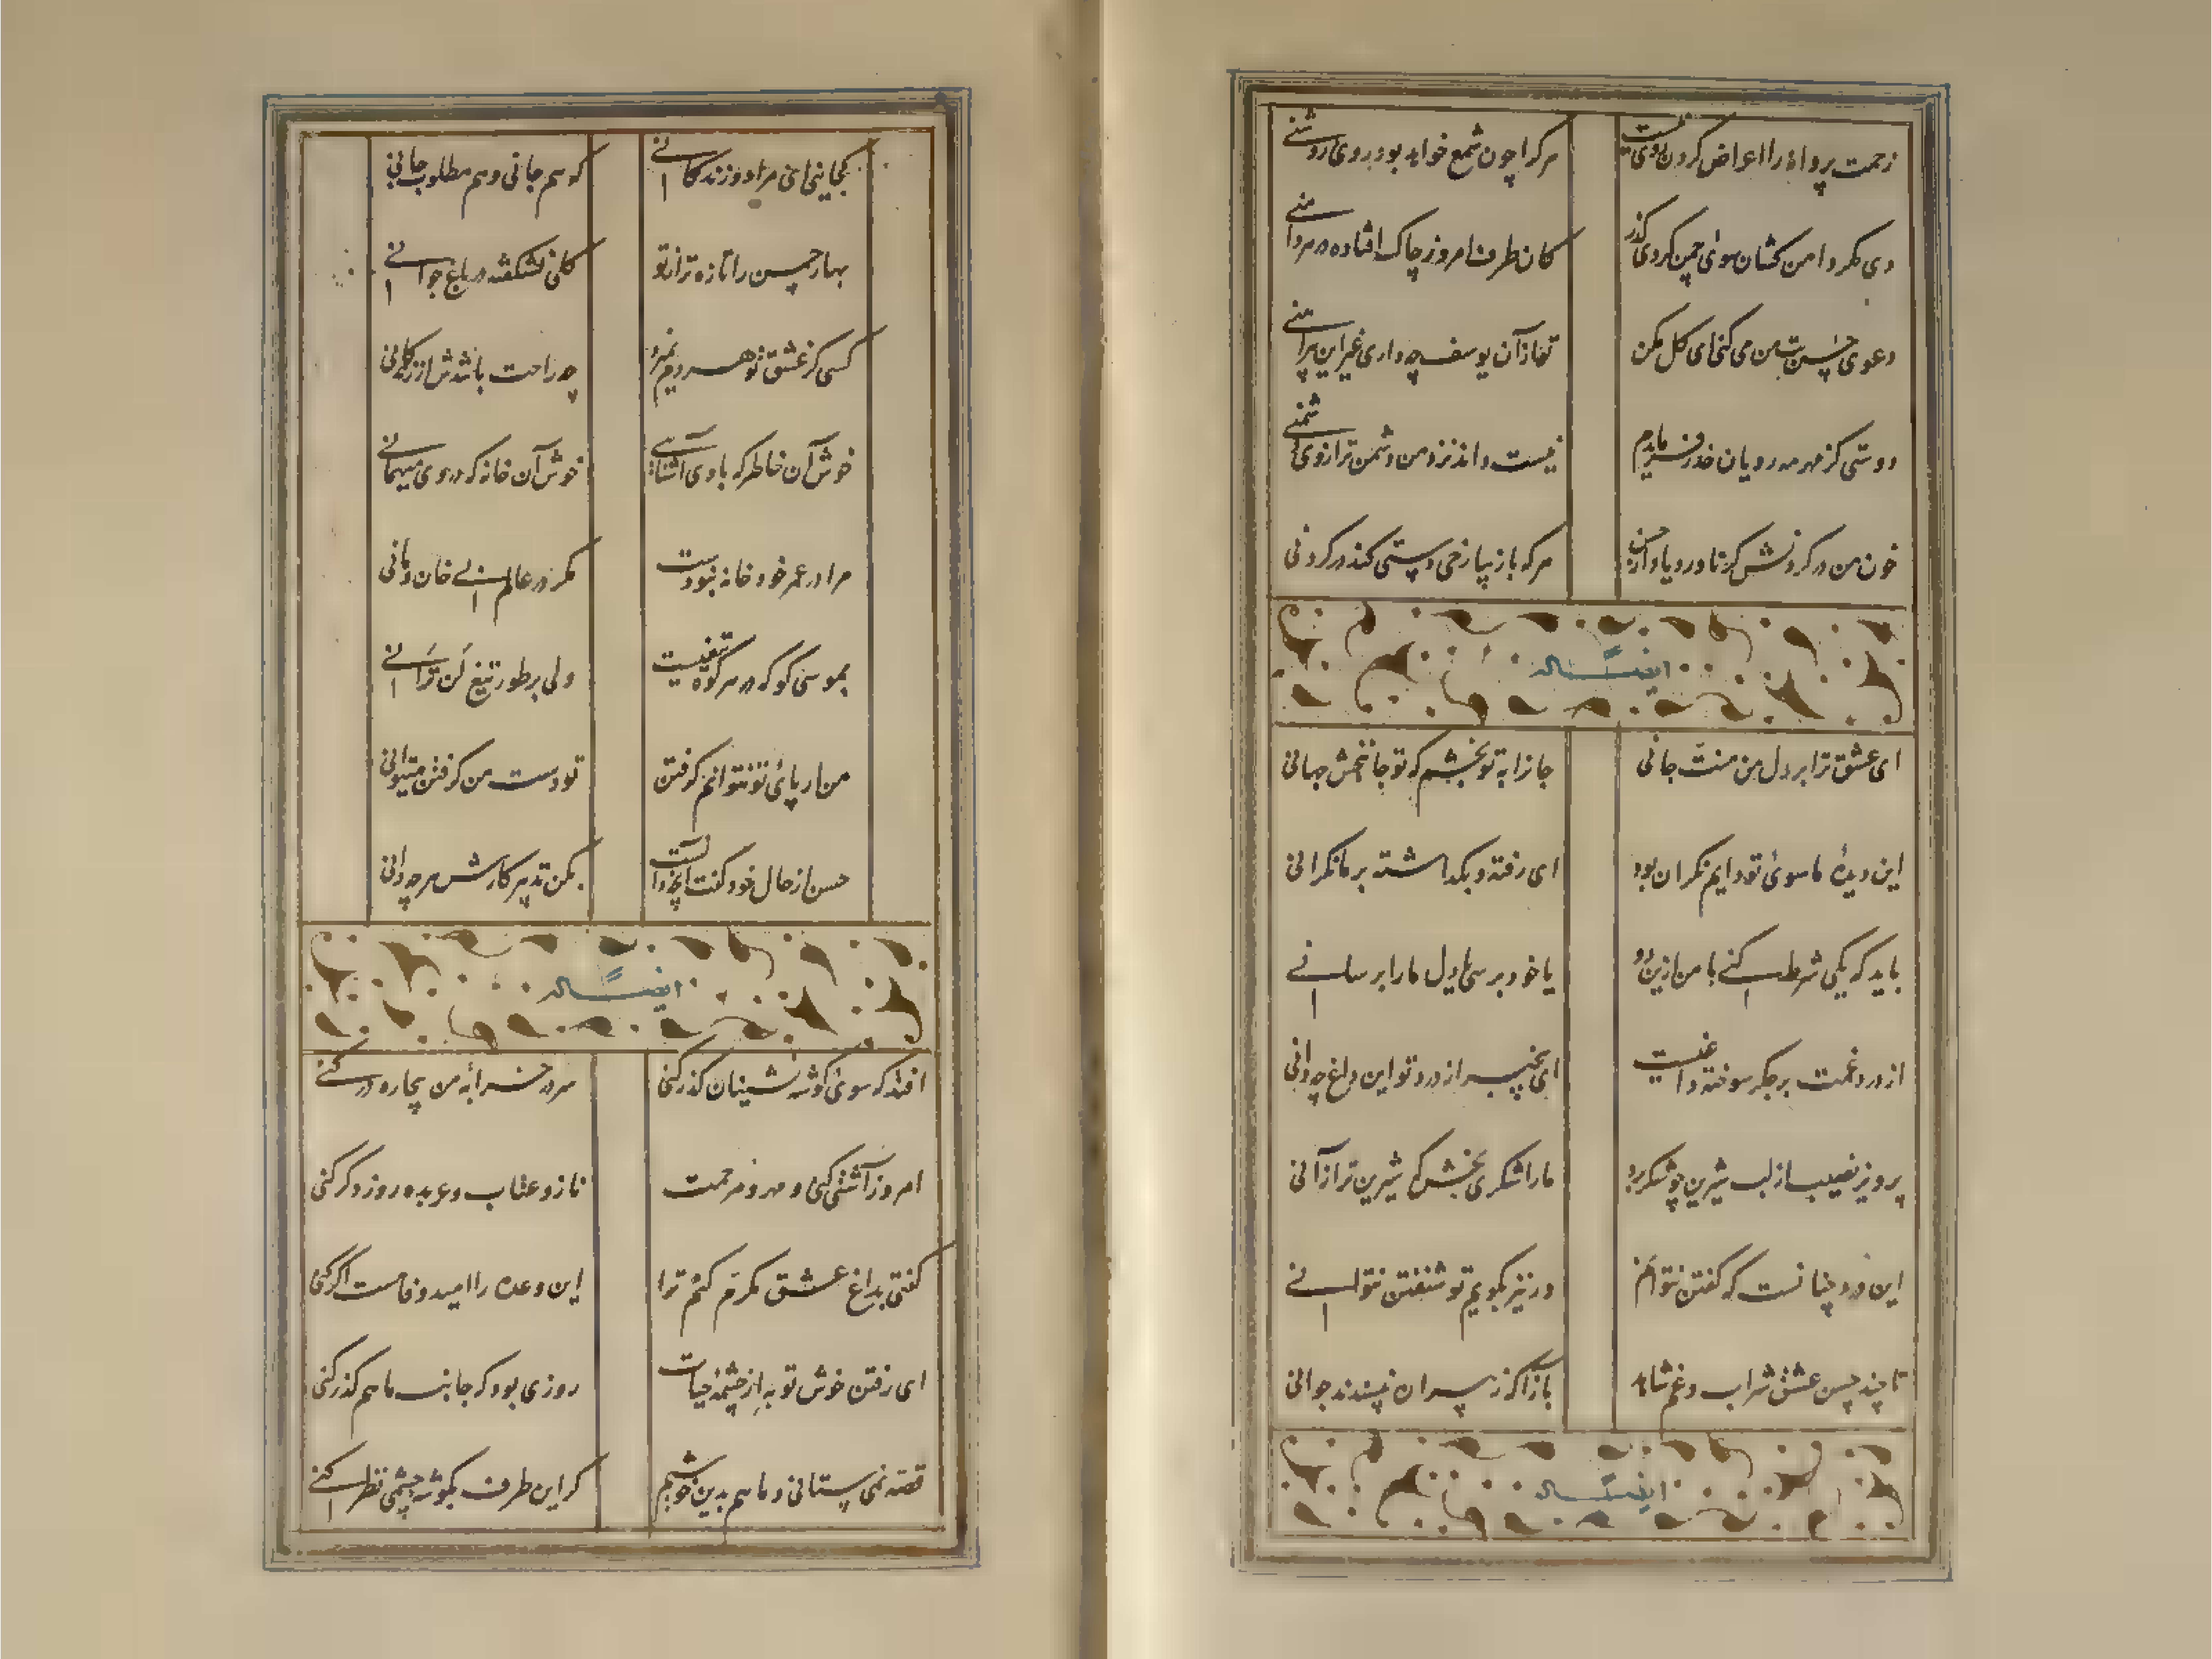 زحمت پروانه را اعراض کردن روی نیست
هر کرا چون شمع خواهد بود روی روشنی
دی مگر دامن کشان سوی چمن کردی گذر
کان طرف امروز چاک افتاده در هر دامنی
دعوی حسنت بمن می کنی ای گل مکن
تو از آن یوسف چه داری غیر این پیراهنی
دوستی کز مهر مه رویان
نیست داند نزد من دشمن تر از وی دشمنی
خون من در گردنش گر نآورد یاد از حسن
هر که با زیبا رخی دستی کند در گردنی
ایضا له
ای عشق ترا بر دل من منت جانی
جانرا به تو بخشم که تو جانبخش جهانی
این دیده ما سوی تو دایم نگران بود
ای رفته و بگذاشته بر ما نگرانی
باید که یکی شرط کنی با من ازین دو
یا خود برسی یا دل ما را برسانی
از درد غمت بر جگر سوخته داغیست
ای بیخبر از درد تو این داغ چه دانی
پرویز نصیب از لب شیرین چو شکر برد
ما را شکری بخش که شیرین تر از آنی
این درد چنانست که گفتن نتوانم
ور نیز بگویم تو شنفتن نتوانی
تا چند حسن عشق شراب و غم شاهد
بازآ که ز پیران نپسندند جوانی
ایضا له
کجایی ای مراد و زندگانی
که هم جانی و هم مطلوب جانی
بهار حسن را تازه تر از تو
گلی نشکفته در باغ جوانی
کسی کز عشق تو هر دم نمیرد
چه راحت باشدش از زندگانی
خوش آن خاطر که با وی آشنایی
خوش آن خانه که در وی میهمانی
مرا در عمر خود خانه نبودست
مگر در عالم بی خان و مانی
بموسی گو که در هر کوه تیغیست
ولی بر طور تیغ لن ترانی
من ار پای تو نتوانم گرفتن
تو دست من گرفتن میتوانی
حسن از حال خود گفت آنچه دانست
بکن تدبیر کارش هر چه دانی
ایضا له
افتد که سوی گوشه نشینان گذر کنی
سر در خرابه من بیچاره در کنی
امروز آشتی کنی و مهر و مرحمت
ناز و عتاب و عربده روز دگر کنی
گفتی بداغ عشق مکرم کنم ترا
این وعده را امید وفاست اگر کنی
ای رفتن خوش تو به از چشمه حیات
روزی بود که جانب ما هم گذر کنی
قصه نمی ستانی و ما هم بدین خوشیم
گر این طرف بگوشه چشمی نظر کنی